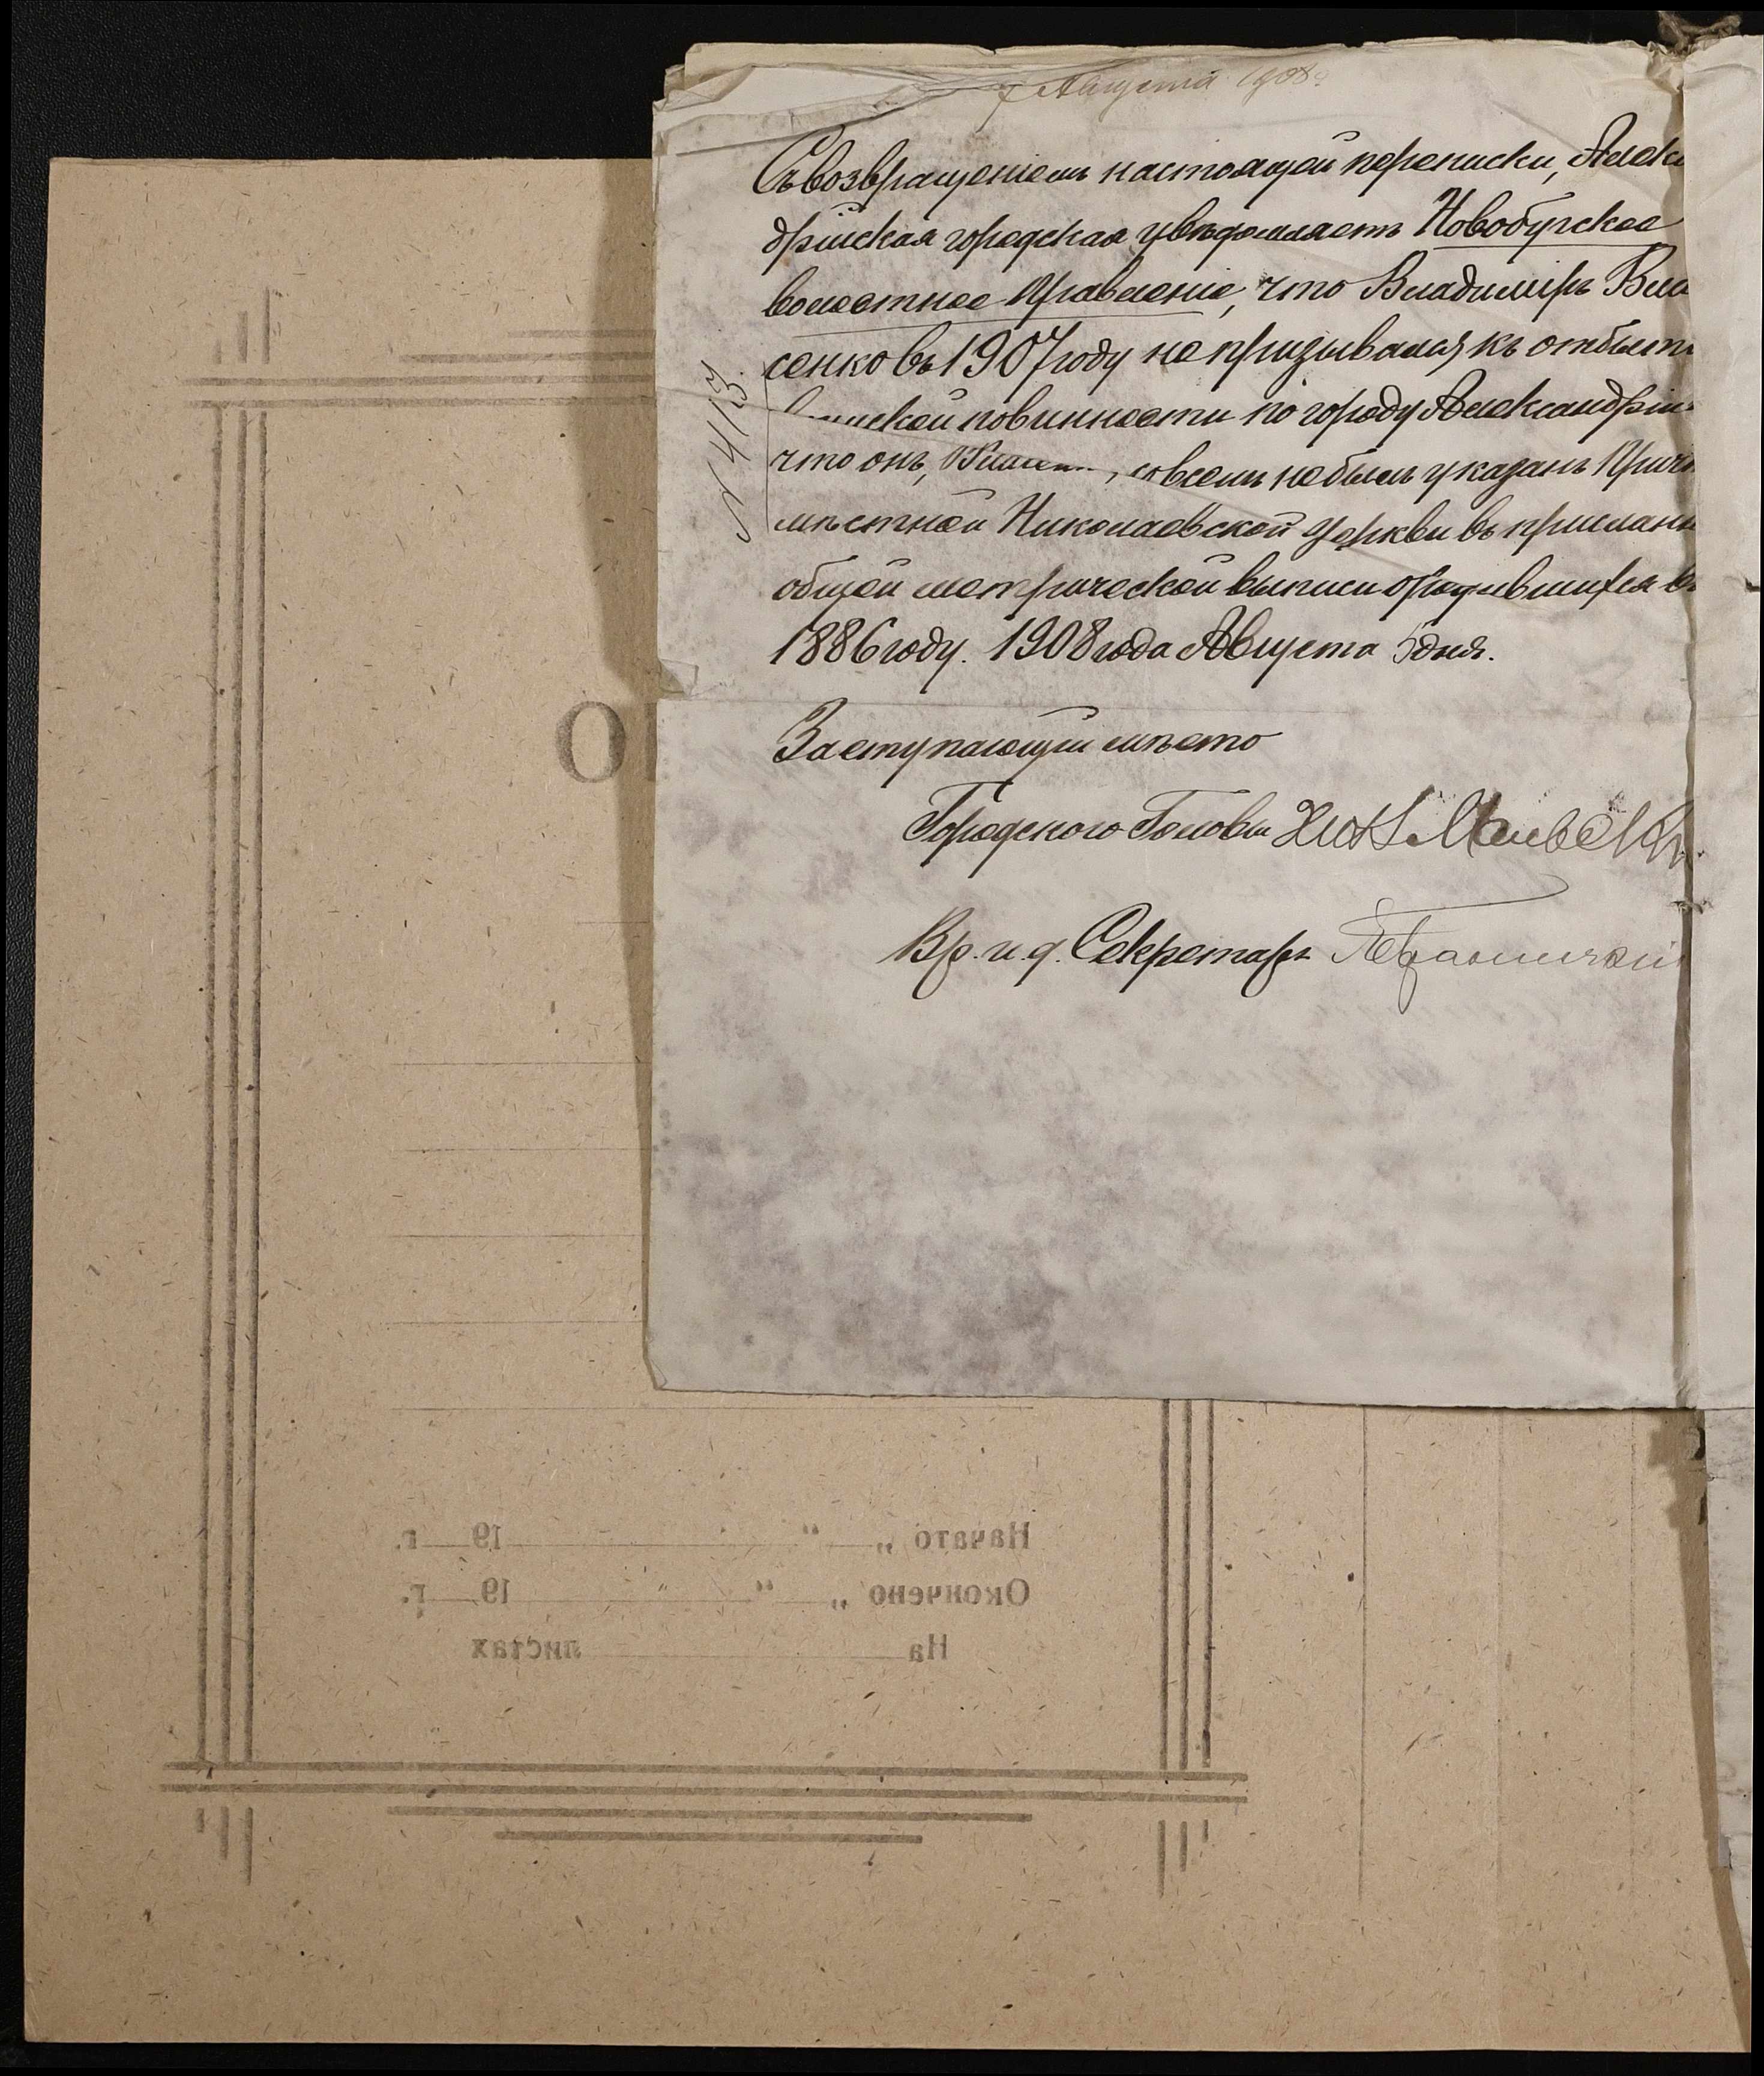 7 Августа 1908 г.
Съ возвращеніемъ настоящей переписки, Алекс
дрійская городская увѣдомляетъ Новобугское
волостное Правленіе, что Владиміръ Вла
сенко въ 1907 году не призывался къ отбыті
воинской повинности по городу Александріи
что онъ, совсемъ не былъ указанъ Причт
мѣстной Николаевской церкви въ присланн
общей метрической выписи о родившихся въ
1886 году. 1908 года Августа 5 дня.
№ 4113.
Заступающій мѣсто
Городского Головы
Вр. и. д. Секретарь
О
Начато „ “ 19 г.
Окончено „ “ 19 г.
На листах